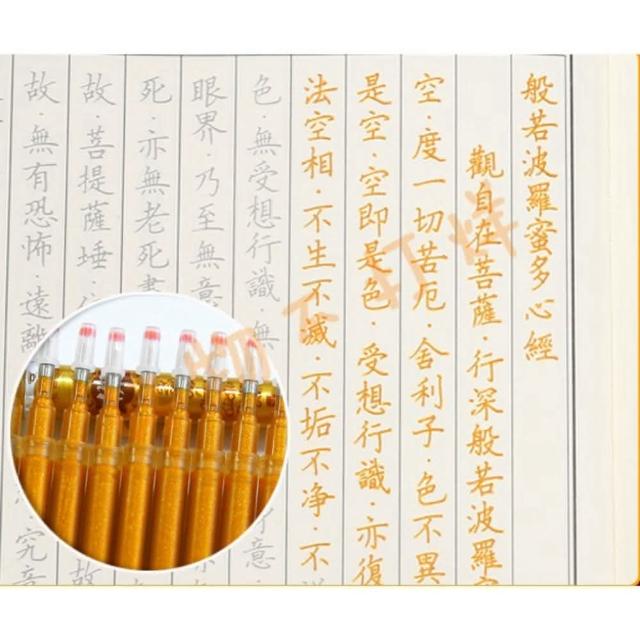 般若波羅蜜多心經
觀自在菩薩·行深般若波羅
空·度一切苦厄·舍利子·色不異
是空·空即是色·受想行識·亦復
法空相·不生不滅·不垢不净·不
色·無受想行識·無 意·
眼界·乃至無意
死·亦無老死
故·菩提薩埵· 故
故·無有恐怖·遠離 究
不打烊